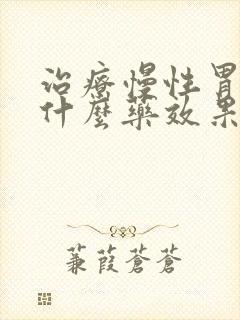 治療慢性胃
什麼藥效果
蒹葭蒼蒼